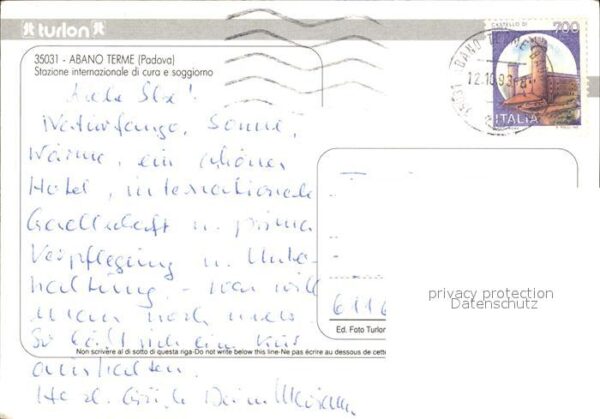 turlon
35031 - ABANO TERME (Padova)
Stazione internazionale di cura e soggiorno
CASTELLO DI
700
ABANO TERME
12.10.93
ITALIA
Naturfango, Sonne,
Wärme, ein schönes
Hotel, internationale
Gesellschaft u. prima
Verpflegung u. Unter-
haltung - was will
man noch mehr.
So läßt sich ein
aushalten.
Herzl. Grüße Deine
privacy protection
Datenschutz
6116
Ed. Foto Turlon
Non scrivere al di sotto di questa riga-Do not write below this line-Ne pas écrire au dessous de cette